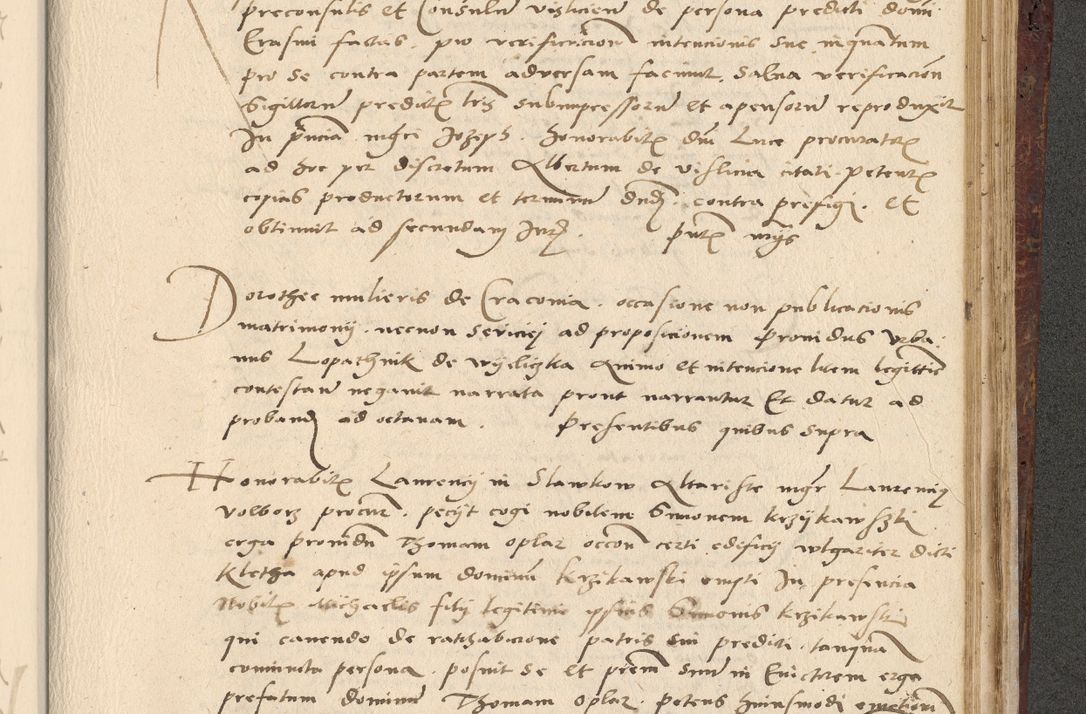 preconsulis et Consulum vislicien de persona predicti domi
Erasmi factas . pro verificacione intencionis sue inquantum
pro se contra partem adversam faciunt, salva verificacion
Sigillorum predictor lris subimpressorum et apensorum reproduxit
In pncia mgri Jozeph . honorabilis dni Luce procuratoris
ad hoc per discretum Albertum de vislicia citati petentis
copias productorum et terminum dnd . contra prefigi . et
obtinuit ad secundam Jurd . pntibus quibus
Dorothee mulieris de Craconia . occasione non publicacionis
matrimonij . necnon seviciej ad proposicionem Providus Urba
nus Lopathnik de wyelicзka Animo et intencione litem legittime
contestan negavit narrata prout narrantur Et datur ad
proband ad octavam . Presentibus quibus supra
Honorabilis Laurencij in Slawkow Altariste mgr Laurencius
Volborz procur . pecijt cogi nobilem Simonem krzykawsski
erga providum Thomam oplar occon certi edificij wlgariter dicti
Kletha apud ipsum dominum krzikawski empti In presencia
Nobilis Michaelis filij legitimi ipsius Simonis krzikawski
qui cavendo de rathabicione patris sui predicti . tanquam
coniuncta persona . posuit se et prem suum in Evictorem erga
prefatum dominum Thomam oplar . petens huiusmodi emptionem